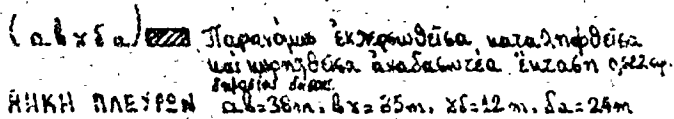 (αβγδα) Παρανόμως ἐκχερσωθεῖσα καταληφθεῖσα
καὶ κηρυχθεῖσα ἀναδασωτέα ἔκταση 0,522στρ.
δημοσίου δάσους.
ΜΗΚΗ ΠΛΕΥΡΩΝ αβ=38m, βγ=35m, γδ=12m, δα=24m